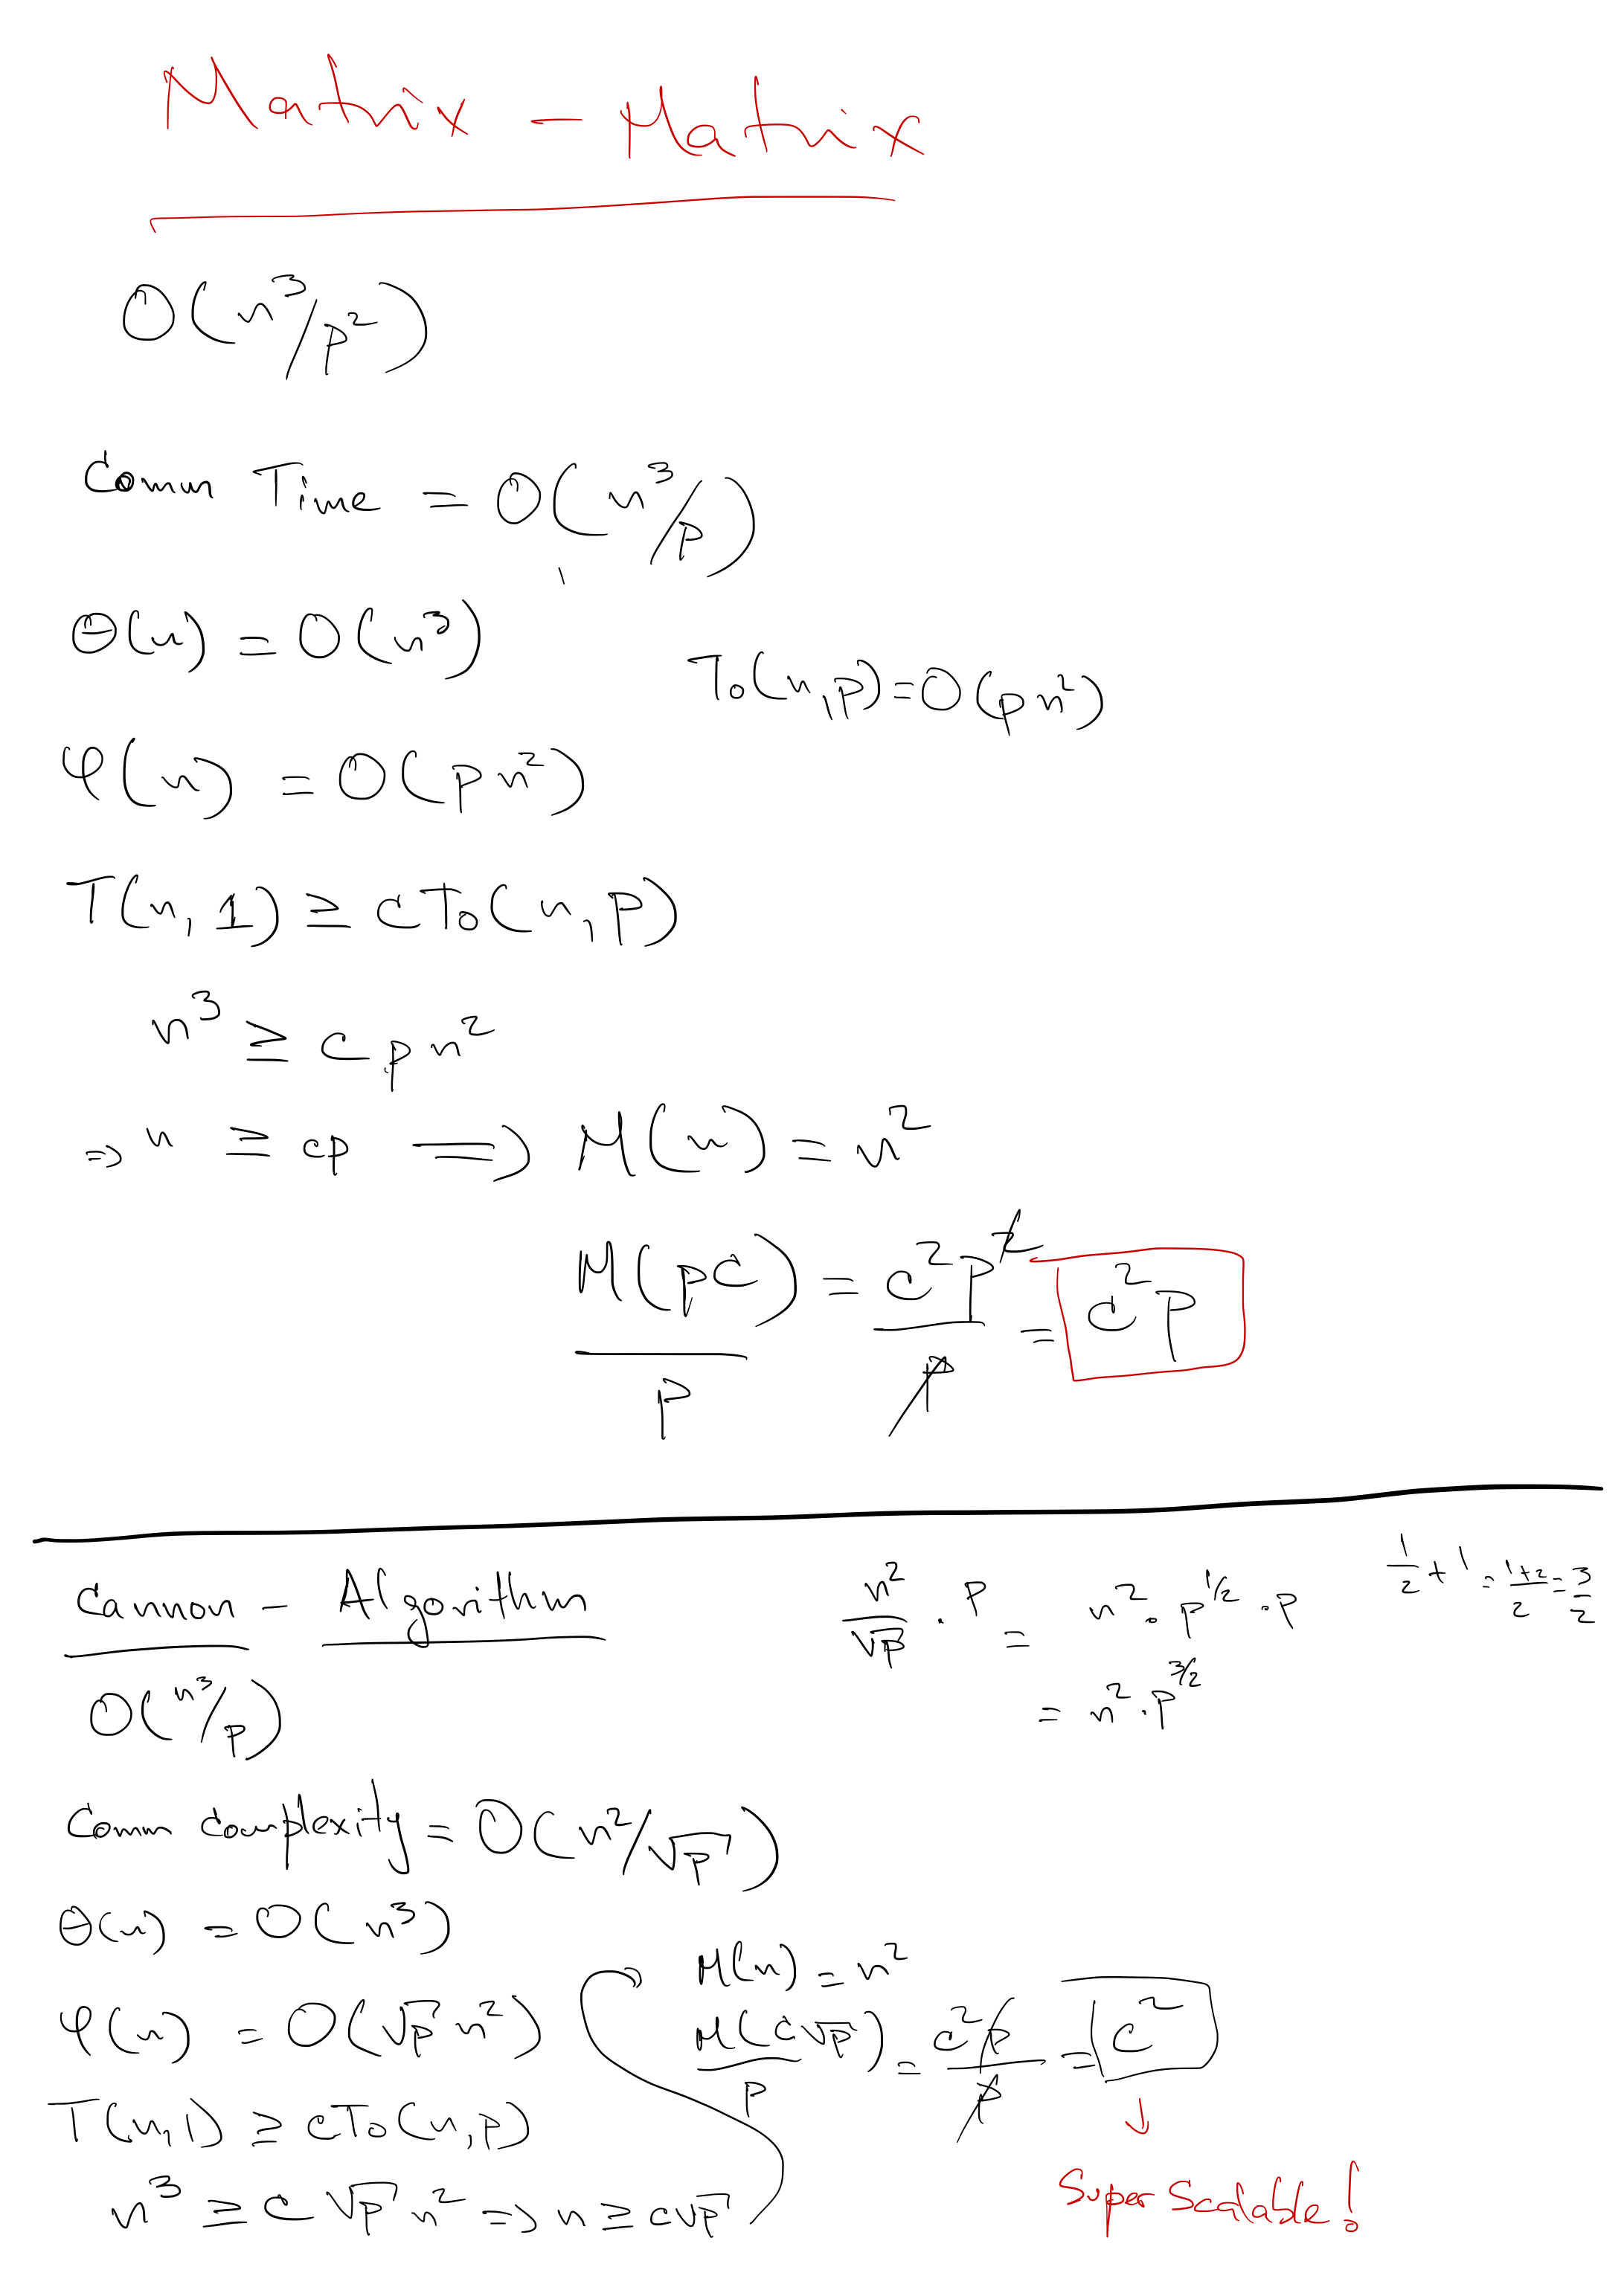 Matrix - Matrix
O(n³/p²)
Comm Time = O(n³/p)
Θ(n) = O(n³)
T₀(n,p) = O(pn²)
φ(n) = O(pn²)
T(n,1) ≥ cT₀(n,p)
n³ ≥ c p n²
⇒ n ≥ cp ⟹ M(n) = n²
M(pc)/p = c²p²/p = c²p
Cannon - Algorithm
n²/√p · p = n² · p^(1/2) · p
1/2 + 1 = (1+2)/2 = 3/2
= n² · p^(3/2)
O(n³/p)
Comm complexity = O(n²/√p)
Θ(n) = O(n³)
φ(n) = O(√p n²)
T(n,1) ≥ cT₀(n,p)
n³ ≥ c √p n² ⇒ n ≥ c√p
M(n) = n²
M(c√p)/p = c²p/p = c²
↓
Super Scalable!